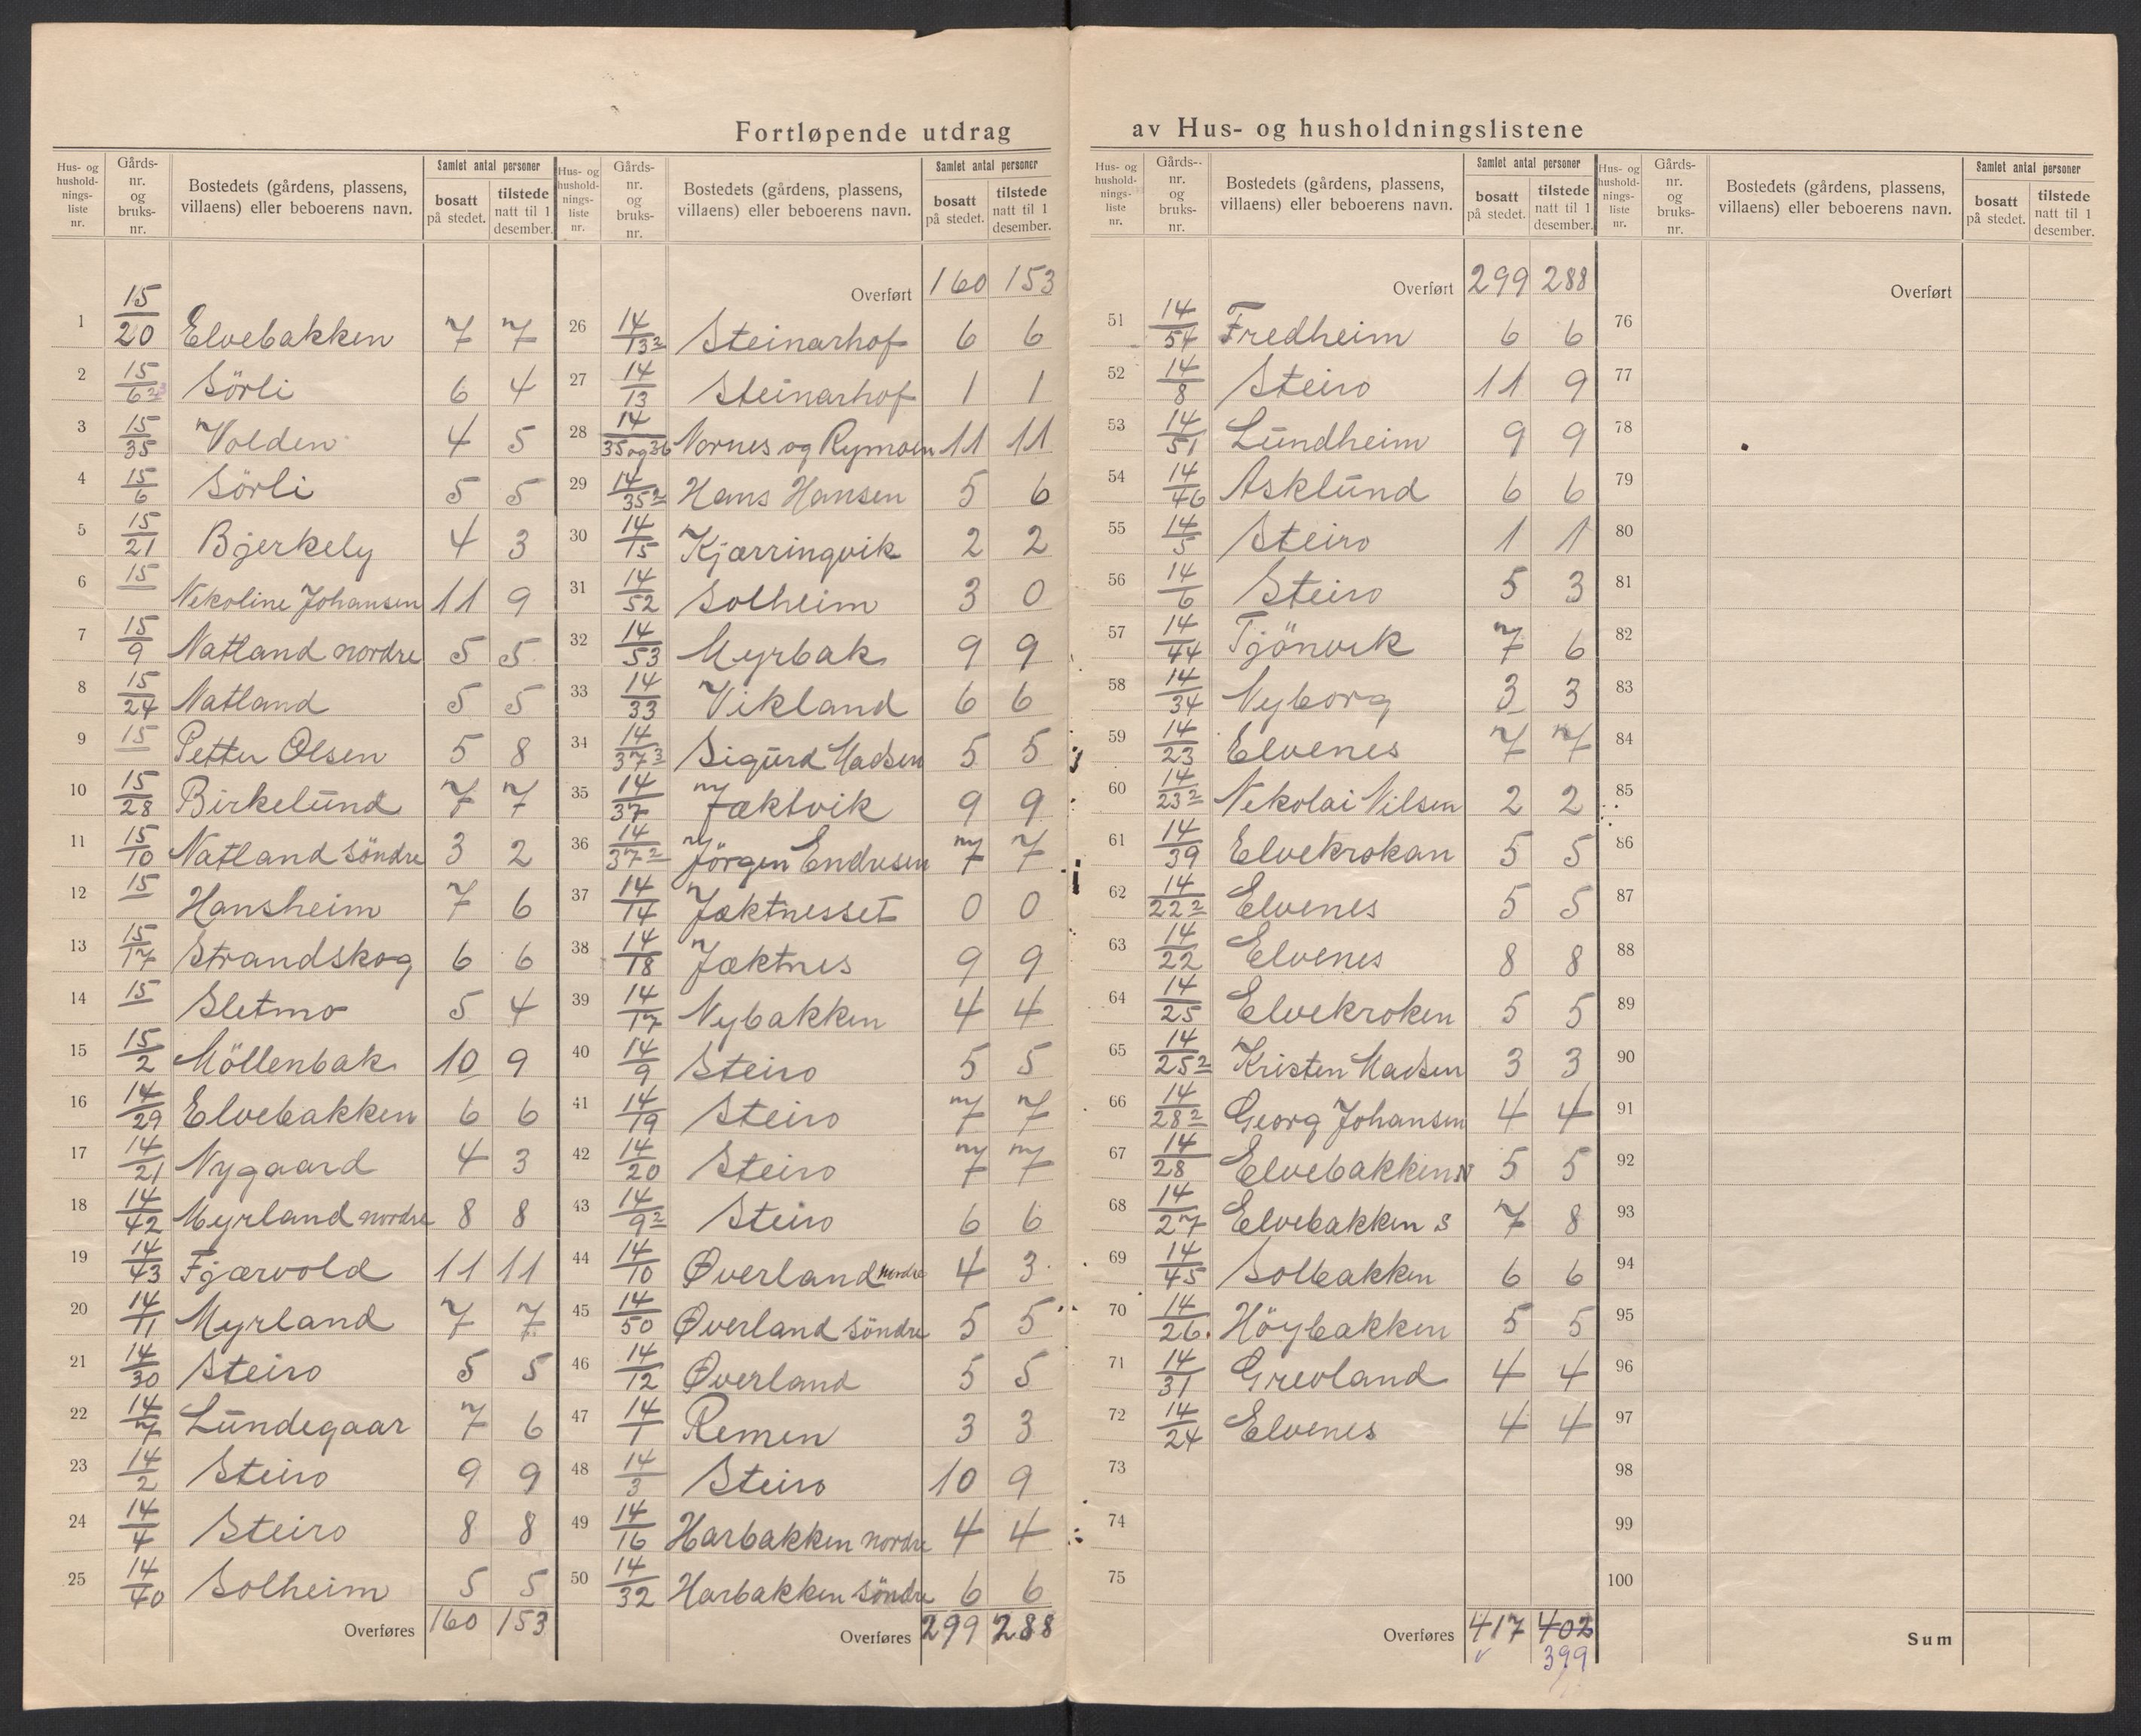 Fortløpende utdrag av Hus- og husholdningslistene
Hus- og hushold-nings-liste nr. | Gårds-nr. og bruks-nr. | Bostedets (gårdens, plassens, villaens) eller beboerens navn. | Samlet antal personer | bosatt på stedet. | tilstede natt til 1 desember.
1 15/20 Elvebakken 7 7
2 15/6 Sörli 6 4
3 15/35 Volden 4 5
4 15/6 Sörli 5 5
5 15/21 Bjerkely 4 3
6 15/ Nekoline Johansen 11 9
7 15/9 Natland nordre 5 5
8 15/24 Natland 5 5
9 15/ Petter Olsen 5 8
10 15/28 Birkelund 7 7
11 15/10 Natland söndre 3 2
12 15/ Hansheim 7 6
13 15/17 Strandskog 6 6
14 15/ Sletmo 5 4
15 15/2 Möllenbak 10 9
16 14/29 Elvebakken 6 6
17 14/21 Nygaard 4 3
18 14/42 Myrland nordre 8 8
19 14/43 Fjærvold 11 11
20 14/11 Myrland 7 7
21 14/30 Steiro 5 5
22 14/7 Lundegaar 7 6
23 14/2 Steiro 9 9
24 14/4 Steiro 8 8
25 14/40 Solheim 5 5
Overføres 160 153
Hus- og hushold-nings-liste nr. | Gårds-nr. og bruks-nr. | Bostedets (gårdens, plassens, villaens) eller beboerens navn. | Samlet antal personer | bosatt på stedet. | tilstede natt til 1 desember.
Overført 160 153
26 14/13 2 Steinarhof 6 6
27 14/13 Steinarhof 1 1
28 14/35 og 36 Nornes og Rymoen 11 11
29 14/35 2 Hans Hansen 5 6
30 14/15 Kjærringvik 2 2
31 14/52 Solheim 3 0
32 14/53 Myrbak 9 9
33 14/33 Vikland 6 6
34 14/37 3 Sigurd Madsen 5 5
35 14/37 Jæktvik 9 9
36 14/37 2 Jörgen Endresen 7 7
37 14/14 Jæktnesset 0 0
38 14/18 Jæktnes 9 9
39 14/17 Nybakken 4 4
40 14/9 Steiro 5 5
41 14/19 Steiro 7 7
42 14/20 Steiro 7 7
43 14/9 2 Steiro 6 6
44 14/10 Øverland nordre 4 3
45 14/50 Øverland söndre 5 5
46 14/12 Øverland 5 5
47 14/1 Remen 3 3
48 14/3 Steiro 10 9
49 14/16 Harbakken nordre 4 4
50 14/32 Harbakken söndre 6 6
Overføres 299 288
Hus- og hushold-nings-liste nr. | Gårds-nr. og bruks-nr. | Bostedets (gårdens, plassens, villaens) eller beboerens navn. | Samlet antal personer | bosatt på stedet. | tilstede natt til 1 desember.
Overført 299 288
51 14/54 Fredheim 6 6
52 14/8 Steiro 11 9
53 14/51 Lundheim 9 9
54 14/46 Asklund 6 6
55 14/5 Steiro 1 1
56 14/6 Steiro 5 3
57 14/44 Tjönvik 7 6
58 14/34 Nyborg 3 3
59 14/23 Elvenes 7 7
60 14/23 2 Nekolai Nilsen 2 2
61 14/39 Elvekrokan 5 5
62 14/22 2 Elvenes 5 5
63 14/22 Elvenes 8 8
64 14/25 Elvekroken 5 5
65 14/25 2 Kristen Madsen 3 3
66 14/28 2 Georg Johansen 4 4
67 14/28 Elvebakken N 5 5
68 14/27 Elvebakken S 7 8
69 14/45 Solbakken 6 6
70 14/26. Höybakken 5 5
71 14/31 Grevland 4 4
72 14/24 Elvenes 4 4
73
74
75
Overføres 417 402
399
Hus- og hushold-nings-liste nr. | Gårds-nr. og bruks-nr. | Bostedets (gårdens, plassens, villaens) eller beboerens navn. | Samlet antal personer | bosatt på stedet. | tilstede natt til 1 desember.
Overført
76
77
78
79
80
81
82
83
84
85
86
87
88
89
90
91
92
93
94
95
96
97
98
99
100
Sum